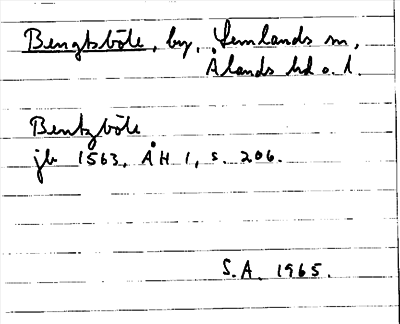 Bengtsböle, by, Lemlands sn,
Ålands hd o. l.
Bentzböle
jb 1563, ÅH 1, s. 206.
S.A. 1965.